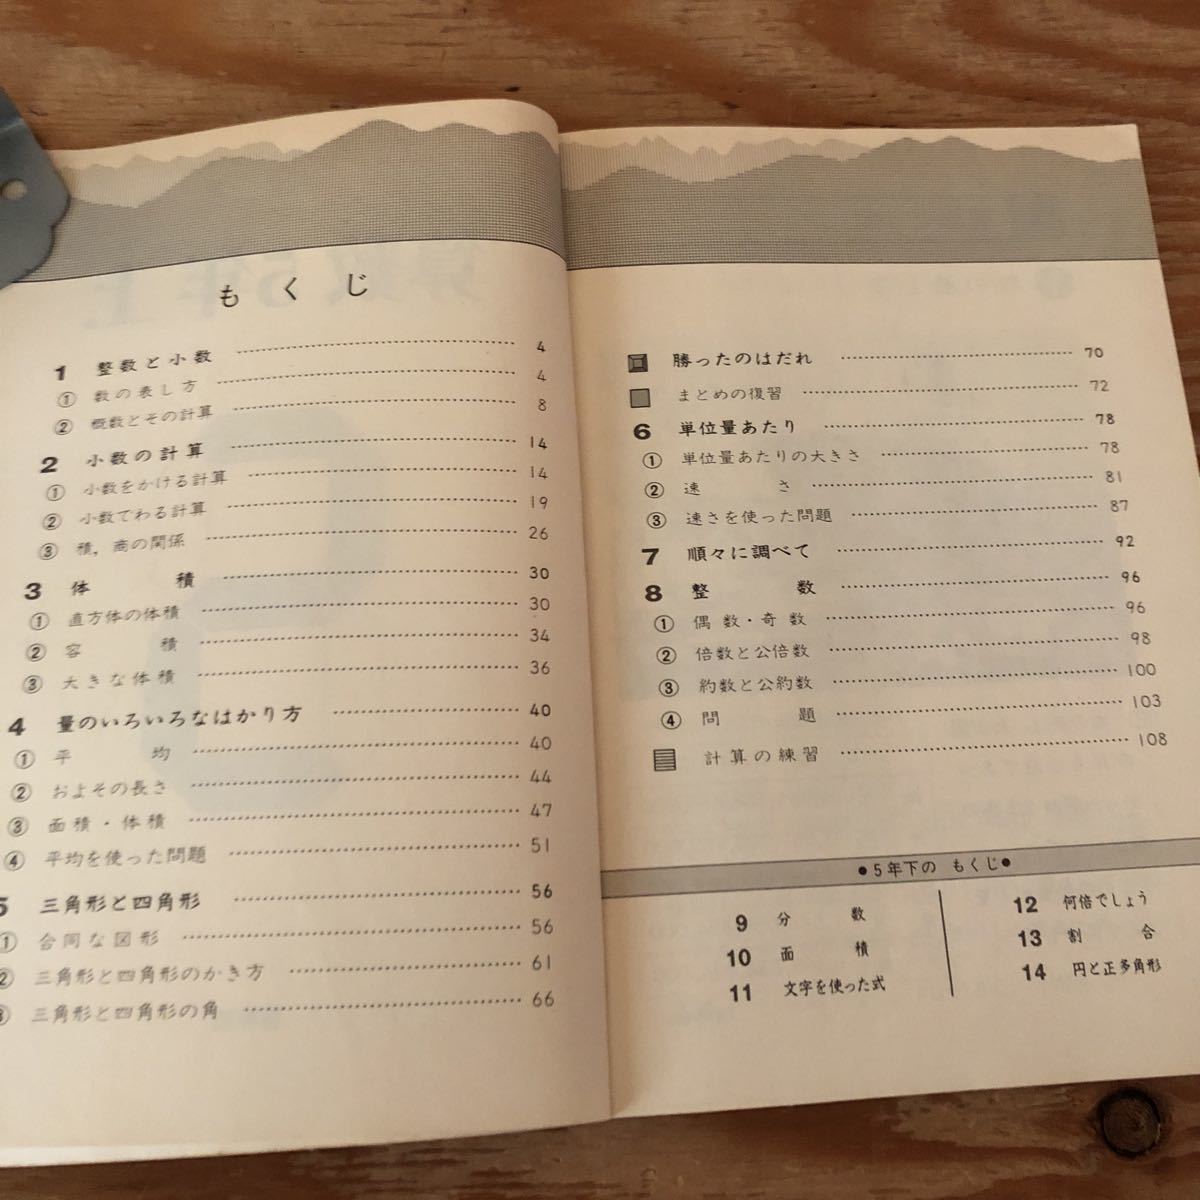 もくじ
1 整数と小数 4
① 数の表し方 4
② 概数とその計算 8
2 小数の計算 14
① 小数をかける計算 14
② 小数でわる計算 19
③ 積，商の関係 26
3 体積 30
① 直方体の体積 30
② 容積 34
③ 大きな体積 36
4 量のいろいろなはかり方 40
① 平均 40
② およその長さ 44
③ 面積・体積 47
④ 平均を使った問題 51
5 三角形と四角形 56
① 合同な図形 56
② 三角形と四角形のかき方 61
③ 三角形と四角形の角 66
勝ったのはだれ 70
まとめの復習 72
6 単位量あたり 78
① 単位量あたりの大きさ 78
② 速さ 81
③ 速さを使った問題 87
7 順々に調べて 92
8 整数 96
① 偶数・奇数 96
② 倍数と公倍数 98
③ 約数と公約数 100
④ 問題 103
計算の練習 108
●5年下の もくじ●
9 分数
10 面積
11 文字を使った式
12 何倍でしょう
13 割合
14 円と正多角形